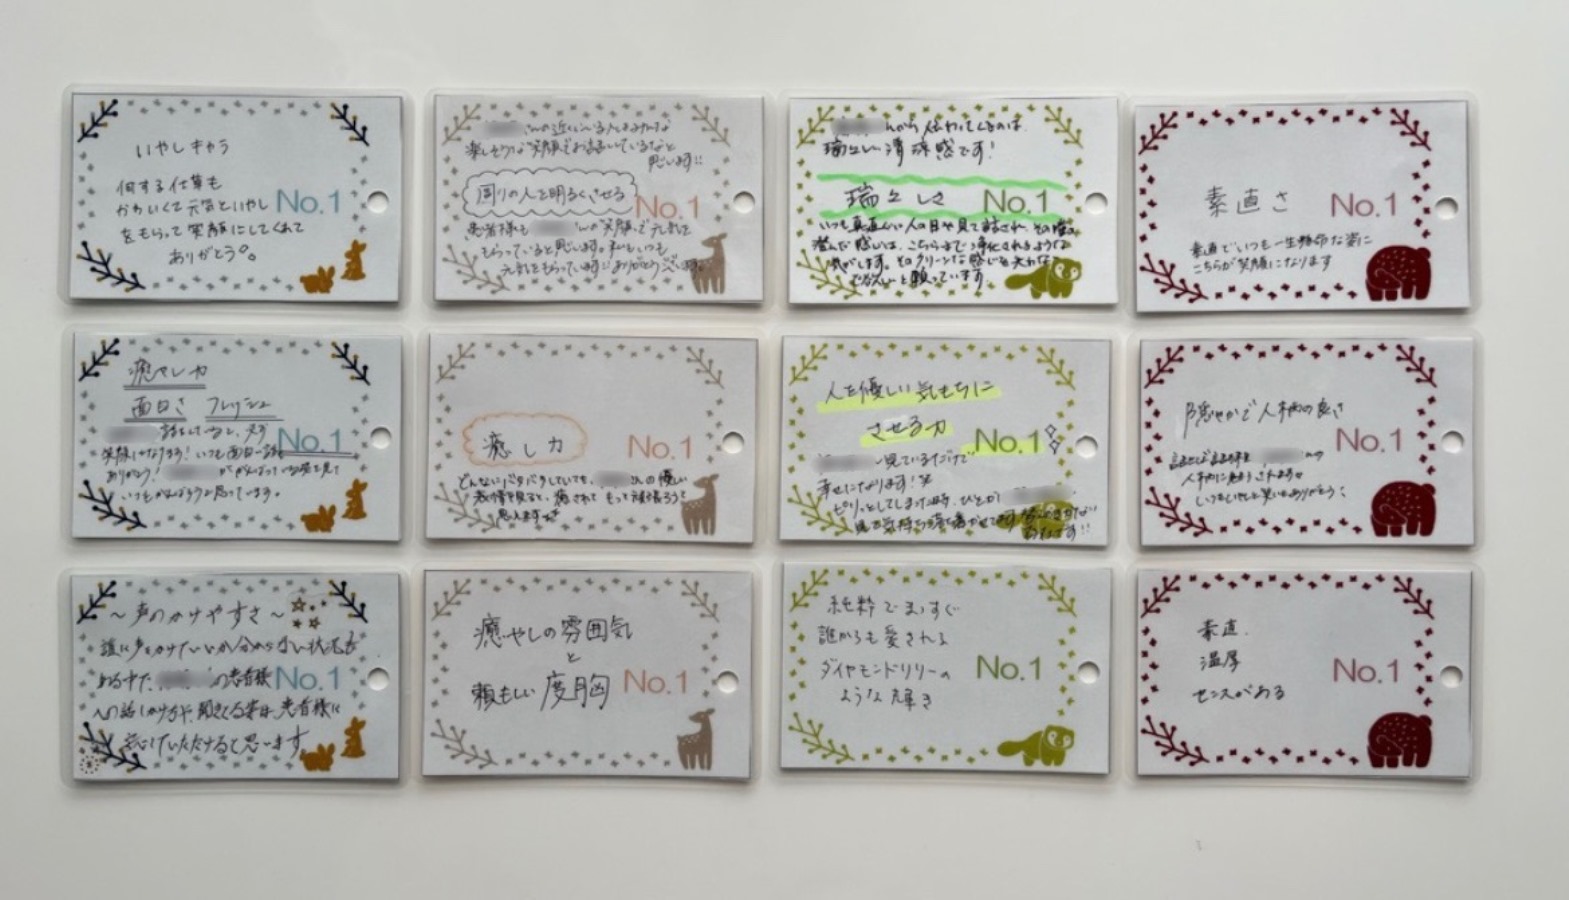 いやしキャラ
何する仕草も
かわいくて元気といやし
No.1
をもらって笑顔にしてくれて
ありがとう。
さんの近くにいる人はみんな
楽しそうな笑顔でお話しているなと
思います!!
周りの人を明るくさせる
No.1
患者様も さんの笑顔で元気を
もらっていると思います。私もいつも
元気をもらっています ありがとうございます。
んから伝わってくるのは、
瑞々しい清涼感です!
瑞々しさ No.1
いつも真直ぐに人の目や見て話され、その瞳の
澄んだ感じは、こちらまで浄化されるような
気がします。そのクリーンな感じを失わな
いで欲しいと願っています
素直さ No.1
素直でいつも一生懸命な姿に
こちらが笑顔になります
癒やし力
面白さ フレッシュ
話をしていると、必ず No.1
笑顔になります! いつも面白い話を
ありがとう! ががんばっている姿を見て
いつもがんばろうと思っています。
癒し力 No.1
どんなにバタバタしていても、 さんの優しい
表情を見ると、癒されて もって頑張ろうと
思えます
人を優しい気もちに
させる力 No.1
見ているだけで
幸せになります!笑
ピリッとしてしまった時、ひとから
見て気持ちを落ち着かせてます
穏やかで人柄の良さ
No.1
話せば話す程 さんの
人柄に魅了されます。
いつもいやしと笑いをありがとう
～声のかけやすさ～
誰に声をかけていいか分からない状況も
ある中で、 の患者様 No.1
への話しかけ方や、聞きてる姿は、患者様に
していただけると思います
癒やしの雰囲気
と
頼もしい 度胸 No.1
純粋でまっすぐ
誰からも愛される
ダイヤモンドリリーの No.1
ような輝き
素直.
温厚 No.1
センスがある